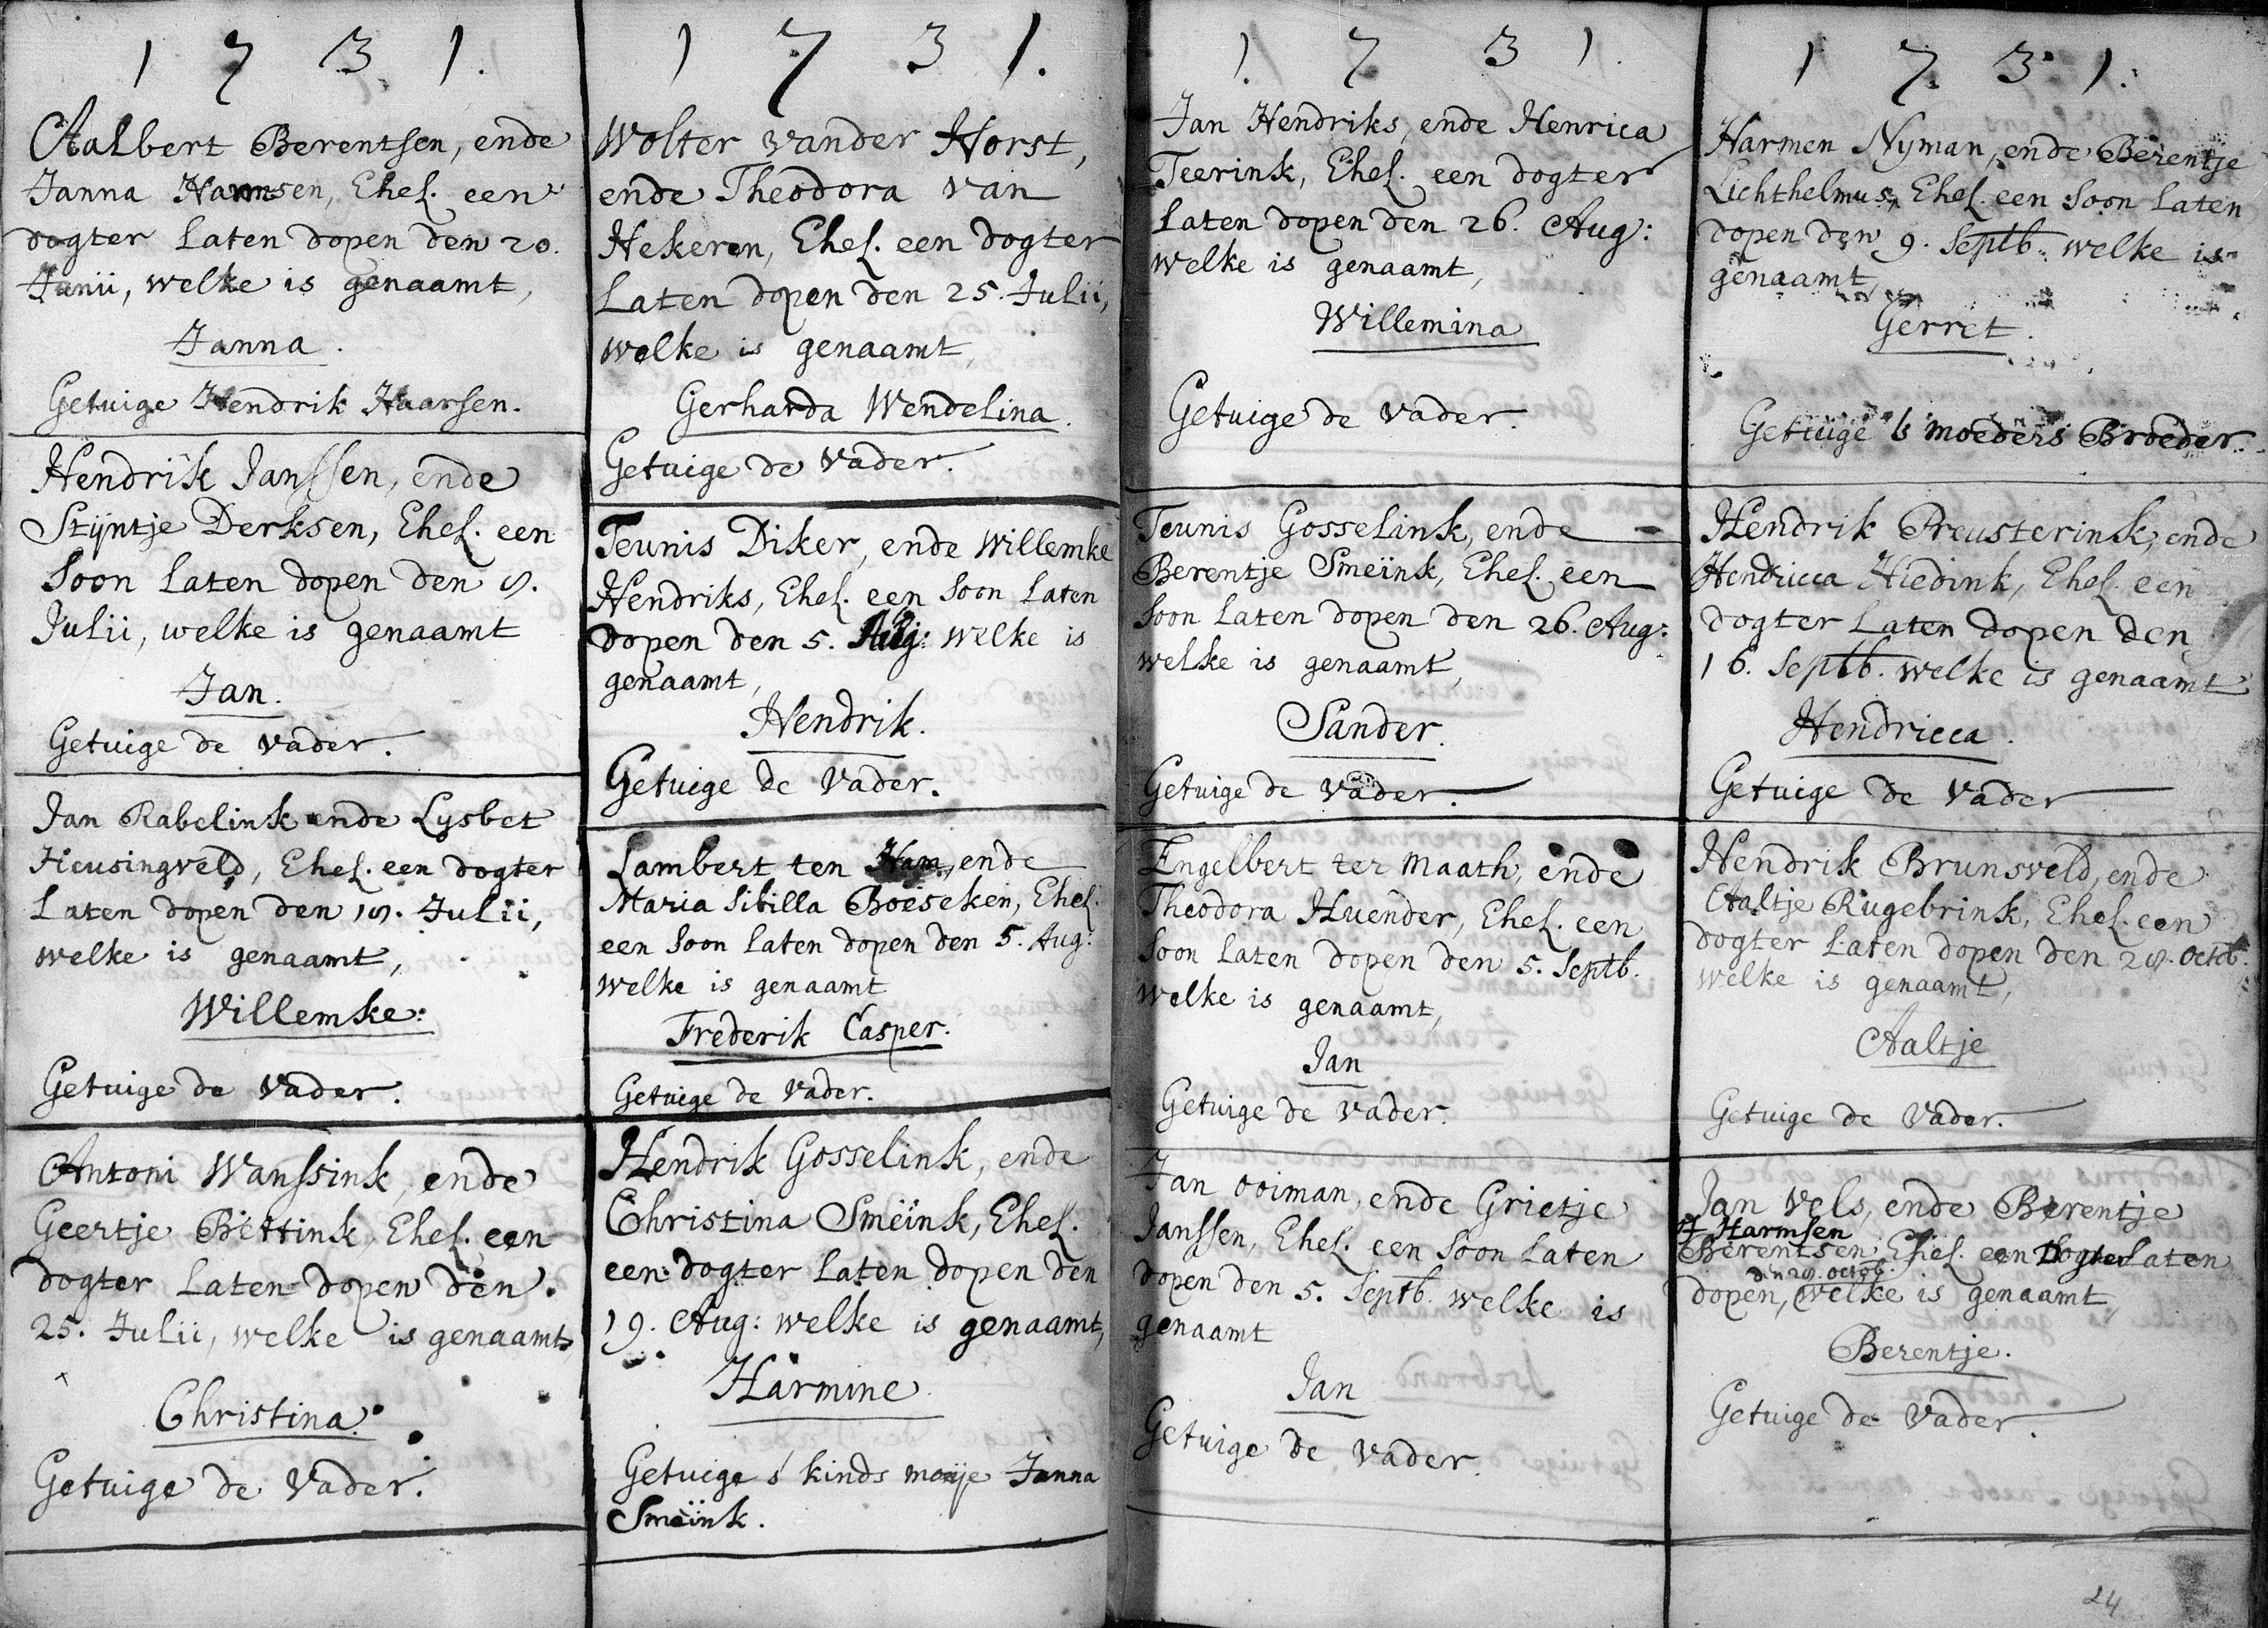 1731.
Aalbert Berentsen, ende
Janna Harmsen, Ehel. een
dogter laten dopen den 20.
Junii, welke is genaamt,
Janna.
Getuige Hendrik Haarsen.
Hendrik Janssen, ende
Stijntje Derksen, Ehel. een
soon laten dopen den 8.
Julii, welke is genaamt
Jan.
Getuige de vader.
Jan Rabelink ende Lysbet
Heusingveld, Ehel. een dogter
laten dopen den 18. Julii,
welke is genaamt,
Willemke:
Getuige de vader.
Antoni Wanssink, ende
Geertje Bettink, Ehel. een
dogter laten dopen den
25. Julii, welke is genaamt,
Christina.
Getuige de Vader.
1731.
Wolter vander Horst,
ende Theodora van
Hekeren, Ehel. een dogter
laten dopen den 25. Julii,
welke is genaamt,
Gerharda Wendelina.
Getuige de Vader.
Teunis Diker, ende Willemke
Hendriks, Ehel. een soon laten
dopen den 5. Aug: welke is
genaamt,
Hendrik.
Getuige de Vader.
Lambert ten Ham, ende
Maria Sibilla Boeseken, Ehel.
een soon laten dopen den 5. Aug:
welke is genaamt
Frederik Casper.
Getuige de Vader.
Hendrik Gosselink, ende
Christina Smeïnk, Ehel.
een dogter laten dopen den
19. Aug: welke is genaamt,
Harmine
Getuige s' kinds moije Janna
Smeïnk.
1731.
Jan Hendriks, ende Henrica
Teerink, Ehel. een dogter
laten dopen den 26. Aug:
welke is genaamt,
Willemina
Getuige de vader.
Teunis Gosselink, ende
Berentje Smeïnk, Ehel. een
soon laten dopen den 26. Aug:
welke is genaamt,
Sander.
Getuige de Vader.
Engelbert ter Maath, ende
Theodora Huender, Ehel. een
soon laten dopen den 5. Septb.
welke is genaamt,
Jan
Getuige de vader.
Jan Ooiman, ende Grietje
Janssen, Ehel. een soon laten
dopen den 5. Septb. welke is
genaamt
Jan
Getuige de vader.
1731.
Harmen Nyman, ende Berentje
Lichthelmus, Ehel. een soon laten
dopen den 9. Septb. welke is
genaamt,
Gerret.
Getuige 's moeders Broeder.
Hendrik Preusterink, ende
Hendricca Hiedink, Ehel. een
dogter laten dopen den
16. Septb. welke is genaamt
Hendricca.
Getuige de vader
Hendrik Brunsveld, ende
Aaltje Rugebrink, Ehel. een
dogter laten dopen den 28. Octob.
welke is genaamt,
Aaltje
Getuige de Vader.
Jan Vels, ende Berentje
Harmsen
Berentsen Ehel. een Dogter laten
den 28. Octob.
dopen, welke is genaamt,
Berentje.
Getuige de Vader.
24